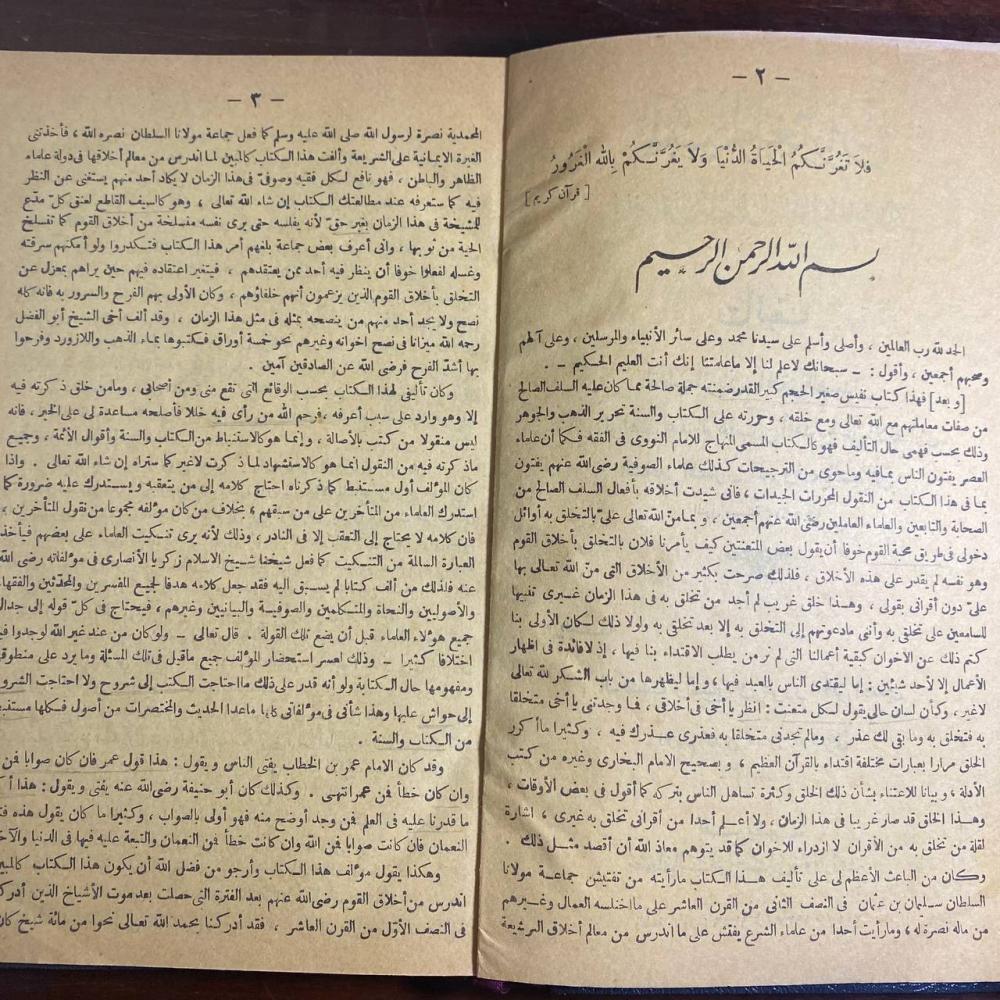 — ٢ —
فلا تَغُرَّنَّكُمُ الْحَيَاةُ الدُّنْيَا وَلَا يَغُرَّنَّكُمْ بِاللهِ الْغَرُورُ
[قرآن كريم]
بسم الله الرحمن الرحيم
الحمد لله رب العالمين ، وأصلى وأسلم على سيدنا محمد وعلى سائر الأنبياء والمرسلين ، وعلى آلهم
وصحبهم أجمعين ، وأقول : — سبحانك لا علم لنا إلا ما علمتنا إنك أنت العليم الحكيم — .
[وبعد] فهذا كتاب نفيس صغير الحجم كبير القدر ضمنته جملة صالحة مما كان عليه السلف الصالح
من صفات معاملتهم مع الله تعالى ومع خلقه ، وحررته على الكتاب والسنة تحرير الذهب والجوهر
وذلك بحسب فهمى حال التأليف فهو كالكتاب المسمى المنهاج للامام النووى فى الفقه فكما أن علماء
العصر يفتون الناس بما فيه وما حوى من الترجيحات كذلك علماء الصوفية رضى الله عنهم يفتون
بما فى هذا الكتاب من النقول المحررات الجيدات ، فانى شيدت أخلاقه بأفعال السلف الصالح من
الصحابة والتابعين والعلماء العاملين رضى الله عنهم أجمعين ، وبما منّ الله تعالى علىّ بالتخلق به أوائل
دخولى فى طريق محبة القوم خوفا أن يقول بعض المتعنتين كيف يأمرنا فلان بالتخلق بأخلاق القوم
وهو نفسه لم يقدر على هذه الأخلاق ، فلذلك صرحت بكثير من الأخلاق التى منّ الله تعالى بها
علىّ دون أقرانى بقولى ، وهذا خلق غريب لم أجد من تخلق به فى هذا الزمان غيرى تنبيها
للسامعين على تخلقى به وأننى مادعوتهم إلى التخلق به إلا بعد تخلقى به ولولا ذلك لكان الأولى بنا
كتم ذلك عن الاخوان كبقية أعمالنا التى لم نر من يطلب الاقتداء بنا فيها ، إذ لا فائدة فى اظهار
الأعمال إلا لأحد شيئين : إما ليقتدى الناس بالعبد فيها ، وإما ليظهرها من باب الشكر لله تعالى
لا غير ، وكأن لسان حالى يقول لكل متعنت : انظر يا أخى فى أخلاقى ، فما وجدتنى يا أخى متخلقا
به فتخلق به وما بقى لك عذر ، ومالم تجدنى متخلقا به فعذرى عذرك فيه ، وكثيرا ما أكرر
الخلق مرارا بعبارات مختلفة اقتداء بالقرآن العظيم ، وبصحيح الامام البخارى وغيره من كتب
الأدلة ، وبيانا للاعتناء بشأن ذلك الخلق وكثرة تساهل الناس بتركه كما أقول فى بعض الأوقات ،
وهذا الخلق قد صار غريبا فى هذا الزمان ، ولا أعلم أحدا من أقرانى تخلق به غيرى ، اشارة
لقلة من تخلق به من الأقران لا ازدراء للاخوان كما قد يتوهم معاذ الله أن أقصد مثل ذلك .
وكان من الباعث الأعظم لى على تأليف هذا الكتاب ما رأيته من تفتيش جماعة مولانا
السلطان سليمان بن عثمان فى النصف الثانى من القرن العاشر على ما اختلسه العمال وغيرهم
من ماله نصرة له ، وما رأيت أحدا من علماء الشرع يفتش على ما اندرس من معالم أخلاق الشريعة
— ٣ —
المحمدية نصرة لرسول الله صلى الله عليه وسلم كما فعل جماعة مولانا السلطان نصره الله ، فأخذتنى
الغيرة الايمانية على الشريعة وألفت هذا الكتاب كالمبين لما اندرس من معالم أخلاقها فى دولة علماء
الظاهر والباطن ، فهو نافع لكل فقيه وصوفىّ فى هذا الزمان لا يكاد أحد منهم يستغنى عن النظر
فيه كما ستعرفه عند مطالعتك الكتاب إن شاء الله تعالى ، وهو كالسيف القاطع لعنق كلّ مدّع
للمشيخة فى هذا الزمان بغير حقّ لأنه يفلسه حتى يرى نفسه منسلخة من أخلاق القوم كما تنسلخ
الحية من ثوبها ، وانى أعرف بعض جماعة بلغهم أمر هذا الكتاب فتكدروا ولو أمكنهم سرقته
وغسله لفعلوا خوفا أن ينظر فيه أحد ممن يعتقدهم ، فيتغير اعتقاده فيهم حين يراهم بمعزل عن
التخلق بأخلاق القوم الذين يزعمون أنهم خلفاؤهم ، وكان الأولى بهم الفرح والسرور به فانه كله
نصح ولا يجد أحد منهم من ينصحه بمثله فى مثل هذا الزمان ، وقد ألف أخى الشيخ أبو الفضل
رحمه الله ميزانا فى نصح اخوانه وغيرهم نحو خمسة أوراق فكتبوها بماء الذهب واللازورد وفرحوا
بها أشدّ الفرح فرضى الله عن الصادقين آمين .
وكان تأليفى لهذا الكتاب بحسب الوقائع التى تقع منى ومن أصحابى ، ومامن خلق ذكرته فيه
إلا وهو وارد على سبب أعرفه ، فرحم الله من رأى فيه خللا فأصلحه مساعدة لى على الخير ، فانه
ليس منقولا من كتب بالأصالة ، وإنما هو كالاستنباط من الكتاب والسنة وأقوال الأئمة ، وجميع
ما ذكرته فيه من النقول انما هو كالاستشهاد لما ذكرت لا غير كما ستراه إن شاء الله تعالى . واذا
كان المؤلف أول مستنبط كما ذكرناه احتاج كلامه إلى من يتعقبه ويستدرك عليه ضرورة كما
استدرك العلماء من المتأخرين على من سبقهم ، بخلاف من كان مؤلفه مجموعا من نقول المتأخرين ،
فان كلامه لا يحتاج إلى التعقب إلا فى النادر ، وذلك لأنه يرى تنكيت العلماء على بعضهم فيأخذ
العبارة السالمة من التنكيت كما فعل شيخنا شيخ الاسلام زكريا الأنصارى فى مؤلفاته رضى الله
عنه فلذلك من ألف كتابا لم يسبق اليه فقد جعل كلامه هدفا لجميع المفسرين والمحدّثين والفقهاء
والأصوليين والنحاة والمتكلمين والصوفية والبيانيين وغيرهم ، فيحتاج فى كلّ قوله إلى جدال
جميع هؤلاء العلماء قبل أن يضع تلك القولة . قال تعالى — ولو كان من عند غير الله لوجدوا فيه
اختلافا كثيرا — وذلك لعسر استحضار المؤلف جميع ماقيل فى تلك المسئلة وما يرد على منطوقها
ومفهومها حال الكتابة ولو أنه قدر على ذلك ما احتاجت الكتب إلى شروح ولا احتاجت الشروح
إلى حواش عليها وهذا شأنى فى مؤلفاتى كلها ماعدا الحديث والمختصرات من أصول فكلها مستنبط
من الكتاب والسنة .
وقد كان الامام عمر بن الخطاب يفتى الناس ويقول : هذا قول عمر فان كان صوابا فمن
وان كان خطأ فمن عمر انتهى . وكذلك كان أبو حنيفة رضى الله عنه يفتى ويقول : هذا أكثر
ما قدرنا عليه فى العلم فمن وجد أوضح منه فهو أولى بالصواب ، وكثيرا ما كان يقول هذه
النعمان فان كانت صوابا فمن الله وان كانت خطأ فمن النعمان والتبعة عليه فيها فى الدنيا والآخرة
وهكذا يقول مؤلف هذا الكتاب وأرجو من فضل الله أن يكون هذا الكتاب كالمبين
اندرس من أخلاق القوم رضى الله عنهم بعد الفترة التى حصلت بعد موت الأشياخ الذين أدركناهم
فى النصف الأوّل من القرن العاشر ، فقد أدركنا بحمد الله تعالى نحوا من مائة شيخ كان